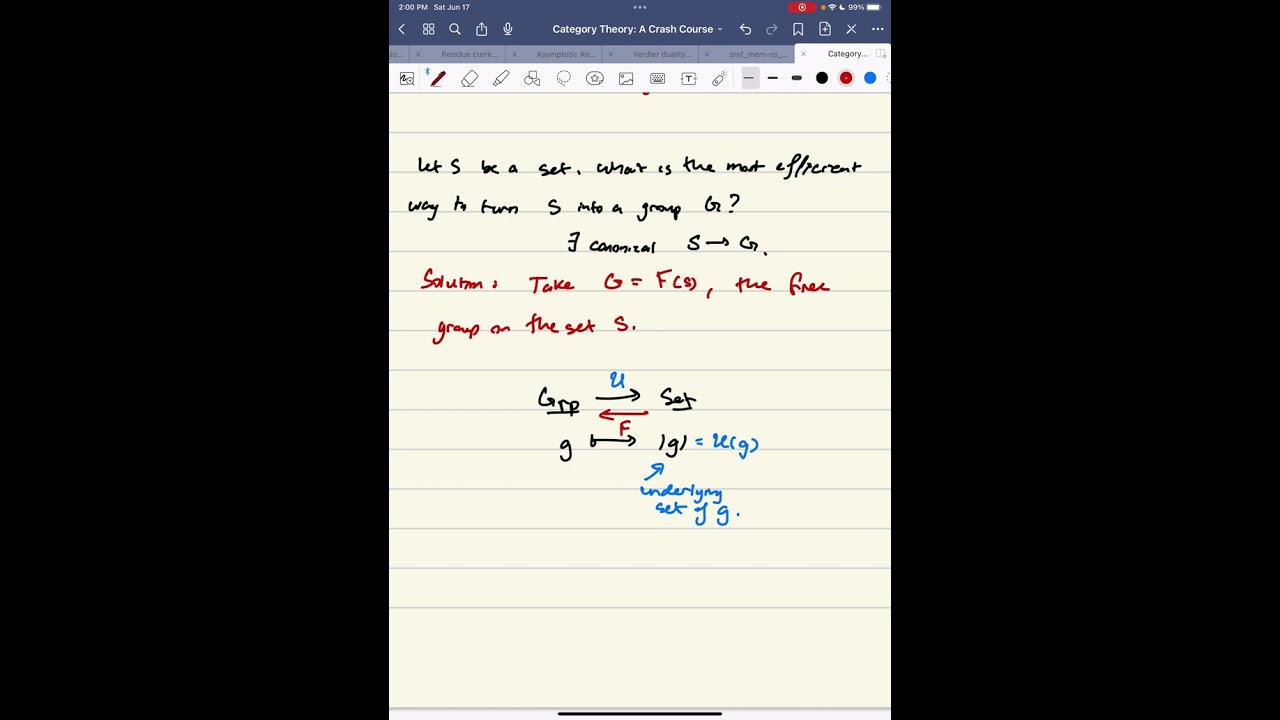 2:00 PM Sat Jun 17
99%
Category Theory: A Crash Course
Residue curre...
Asymptotic An...
Verdier duality...
smf_mem-ns_...
Category...
Let S be a set. What is the most efficient
way to turn S into a group G?
∃ canonical S → G.
Solution: Take G = F(S), the free
group on the set S.
U
Grp → Set
←
F
g ↦ |g| = U(g)
underlying
set of g.